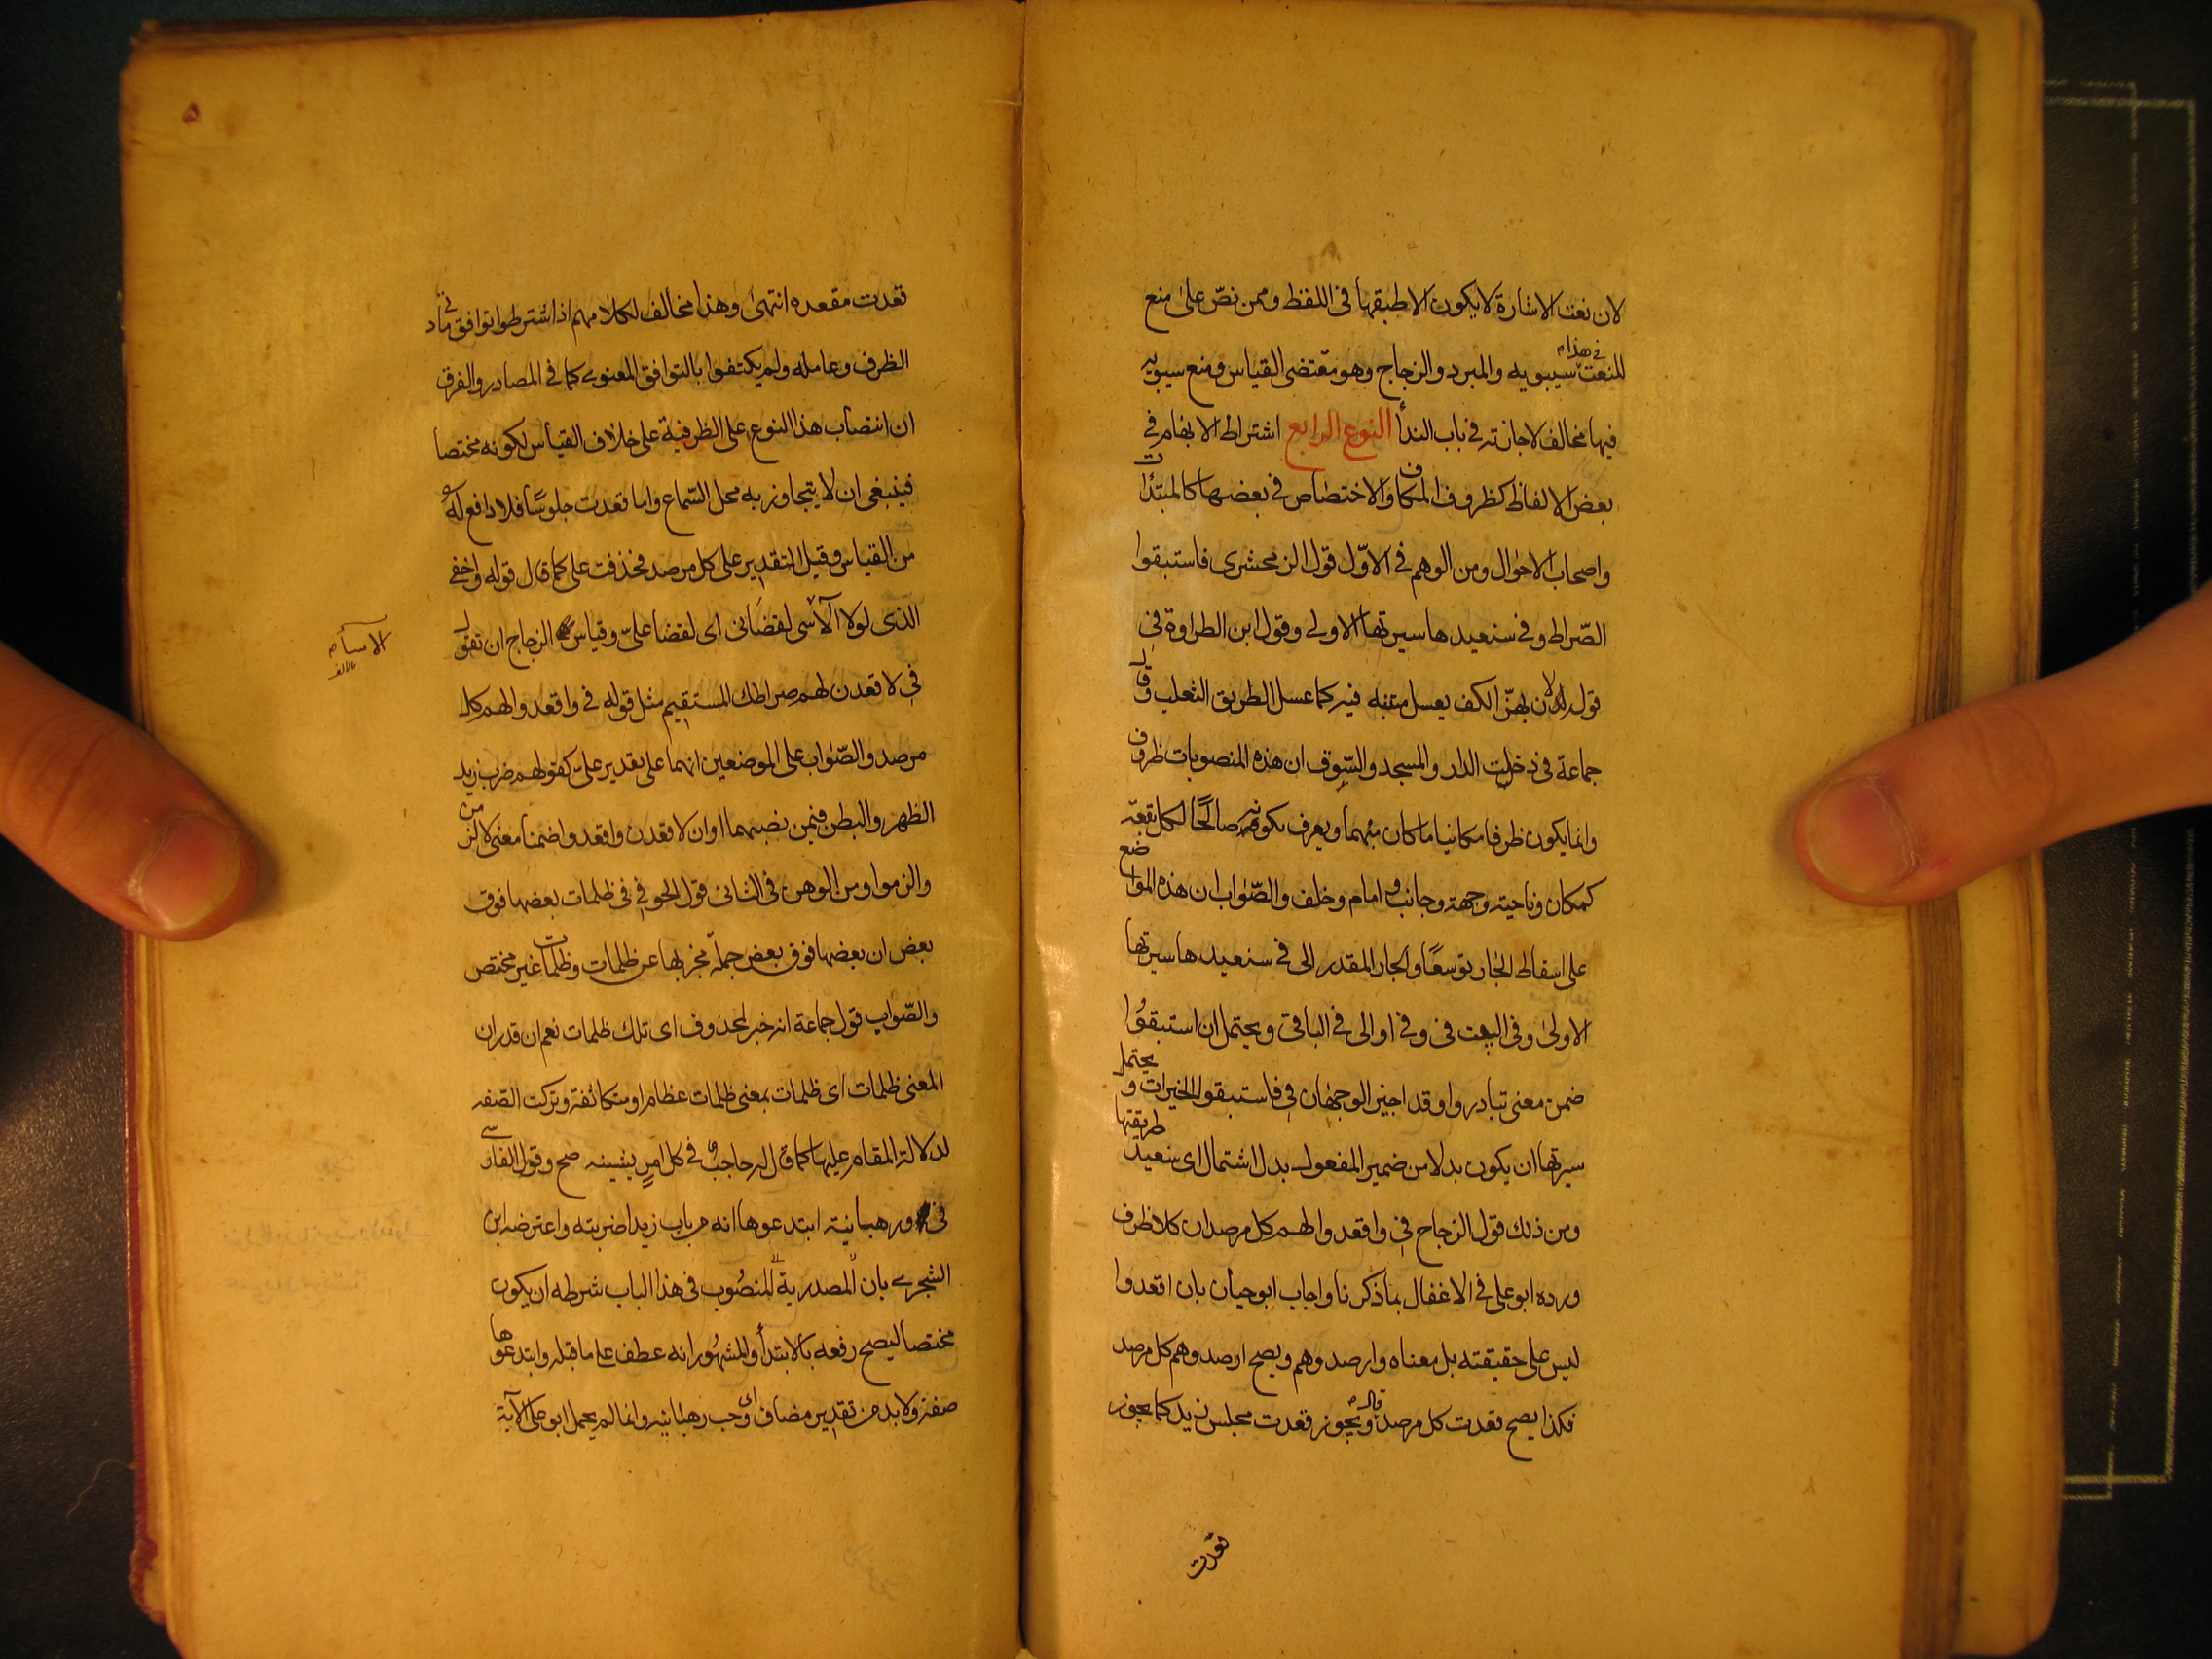 لان نعت الاشارة لا يكون الا طبقها فى اللفظ وممن نصّ على منع
فى هذا م
للنعت سيبويه والمبرد والزجاج وهو مقتضى القياس ومنع سيبويه
فيها مخالف لاجازته فى باب النداء النوع الرابع اشتراط الابهام فى
بعض الالفاظ كظروف المكان والاختصاص فى بعضها كالمبتدآت
واصحاب الاحوال ومن الوهم فى الاوّل قول الزمحشرى فاستبقوا
الصّراط وفى سنعيدها سيرتها الاولى وقول ابن الطراوة فى
قوله لدن بهزّ الكف يعسل متنه فيه كما عسل الطريق الثعلب وقول
جماعة فى دخلت الدار والمسجد والسّوق ان هذه المنصوبات ظروف
وانما يكون ظرفا مكانيا ما كان مبهما ويعرف بكونه صالحًا لكل بقعة
كمكان وناحية وجهة وجانب وامام وخلف والصّواب ان هذه المواضع
على اسقاط الجار توسعًا والجار المقدر الى فى سنعيدها سيرتها
الاولى وفى البيت فى وفى او الى فى الباقى ويحتمل ان استبقوا
ضمن معنى تبادروا وقد اجيز الوجهان فى فاستبقوا الخيرات ويحتمل
سيرتها ان يكون بدلا من ضمير المفعول بدل اشتمال اى سنعيد طريقتها
ومن ذلك قول الزجاج فى واقعدوا لهم كل مرصد ان كلا ظرف
ورده ابو على فى الاغفال بما ذكرنا واجاب ابو حيان بان اقعدوا
ليس على حقيقته بل معناه وارصدوهم ويصح ارصدوهم كل مرصد
فكذا يصح قعدت كل مرصد قال ويجوز قعدت مجلس زيد كما يجوز
قعدت
قعدت مقعده انتهى وهذا مخالف لكلامهم اذ اشترطوا توافق مادتى
الظرف وعامله ولم يكتفوا بالتوافق المعنوى كما فى المصادر والفرق
ان انتصاب هذا النوع على الظرفية على خلاف القياس لكونه مختصا
فينبغى ان لا يتجاوز به محل السّماع واما قعدت جلوسًا فلا دافع له
من القياس وقيل التقدير على كل مرصد فحذفت على كما قال قوله واخفى
الذى لولا الآسى لقضانى اى لقضا علىّ وقياس الزجاج ان تقول
الاسا م
فى لاقعدن لهم صراطك المستقيم مثل قوله فى واقعدوا لهم كل
مرصد والصّواب على الموضعين انهما على تقدير على كقولهم ضرب زيد
الظهر والبطن فيمن نصبهما او ان لاقعدن واقعدوا ضمنا معنى لالزمن
والزموا ومن الوهن فى الثانى قول الحوفى فى ظلمات بعضها فوق
بعض ان بعضها فوق بعض جملة مخبر بها عن ظلمات وظلمات غير مختص
والصّواب قول جماعة انه خبر لمحذوف اى تلك ظلمات نعم ان قدر ان
المعنى ظلمات اى ظلمات بمعنى ظلمات عظام او متكاثفة وتركت الصفه
لدلالة المقام عليها كما قال له حاجب فى كل امر يشينه صح وقول الفارسى
فى ورهبانية ابتدعوها انه من باب زيدا ضربته واعترضه ابن
الشجرى بان المصدرية المنصوب فى هذا الباب شرطه ان يكون
مختصا ليصح رفعه بالابتدأ والمشهور انه عطف على ما قبله وابتدعوها
صفة ولا بد من تقدير مضاف اى وحب رهبانية وانما لم يحمل ابو على الآية